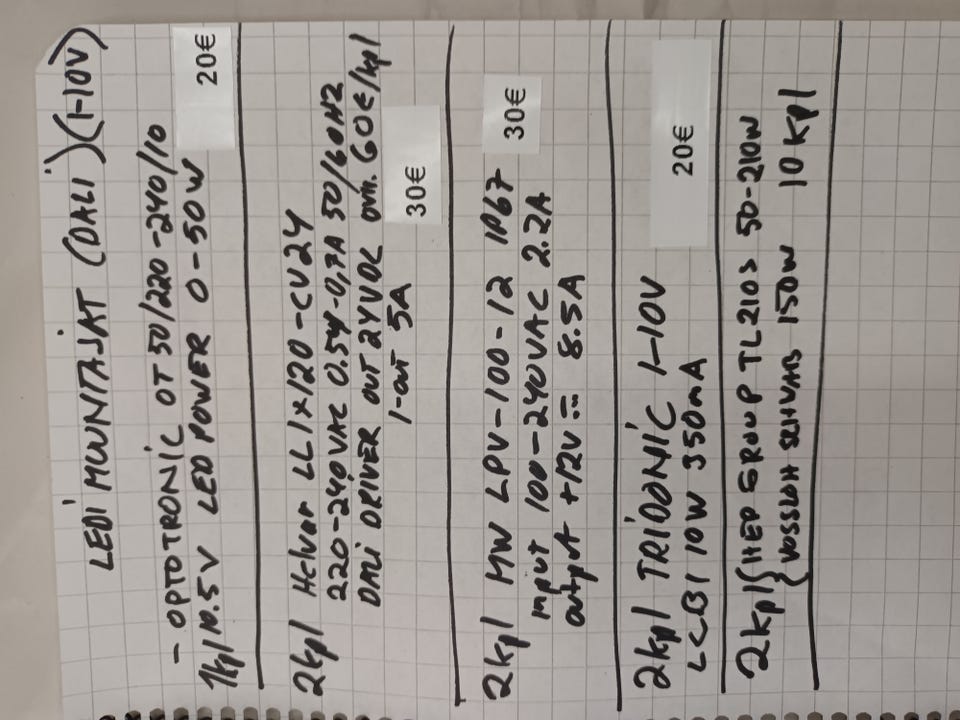 LEDI MUUNTAJAT (DALI) (1-10V)
- OPTOTRONIC OT 50/220-240/10
1kpl 10.5V LED POWER 0-50W
20€
2kpl Helvar LL1x120-CV24
220-240VAC 0.54-0,7A 50/60HZ
DALI DRIVER OUT 24VDC ovh. 60€/kpl
1-out 5A
30€
2kpl MW LPV-100-12 IP67
30€
input 100-240VAC 2.2A
output +12V 8.5A
2kpl TRIDONIC 1-10V
20€
LCBI 10W 350mA
2kpl HEP GROUP TL210S 50-210W
VOSSLOH 150W 10 kpl